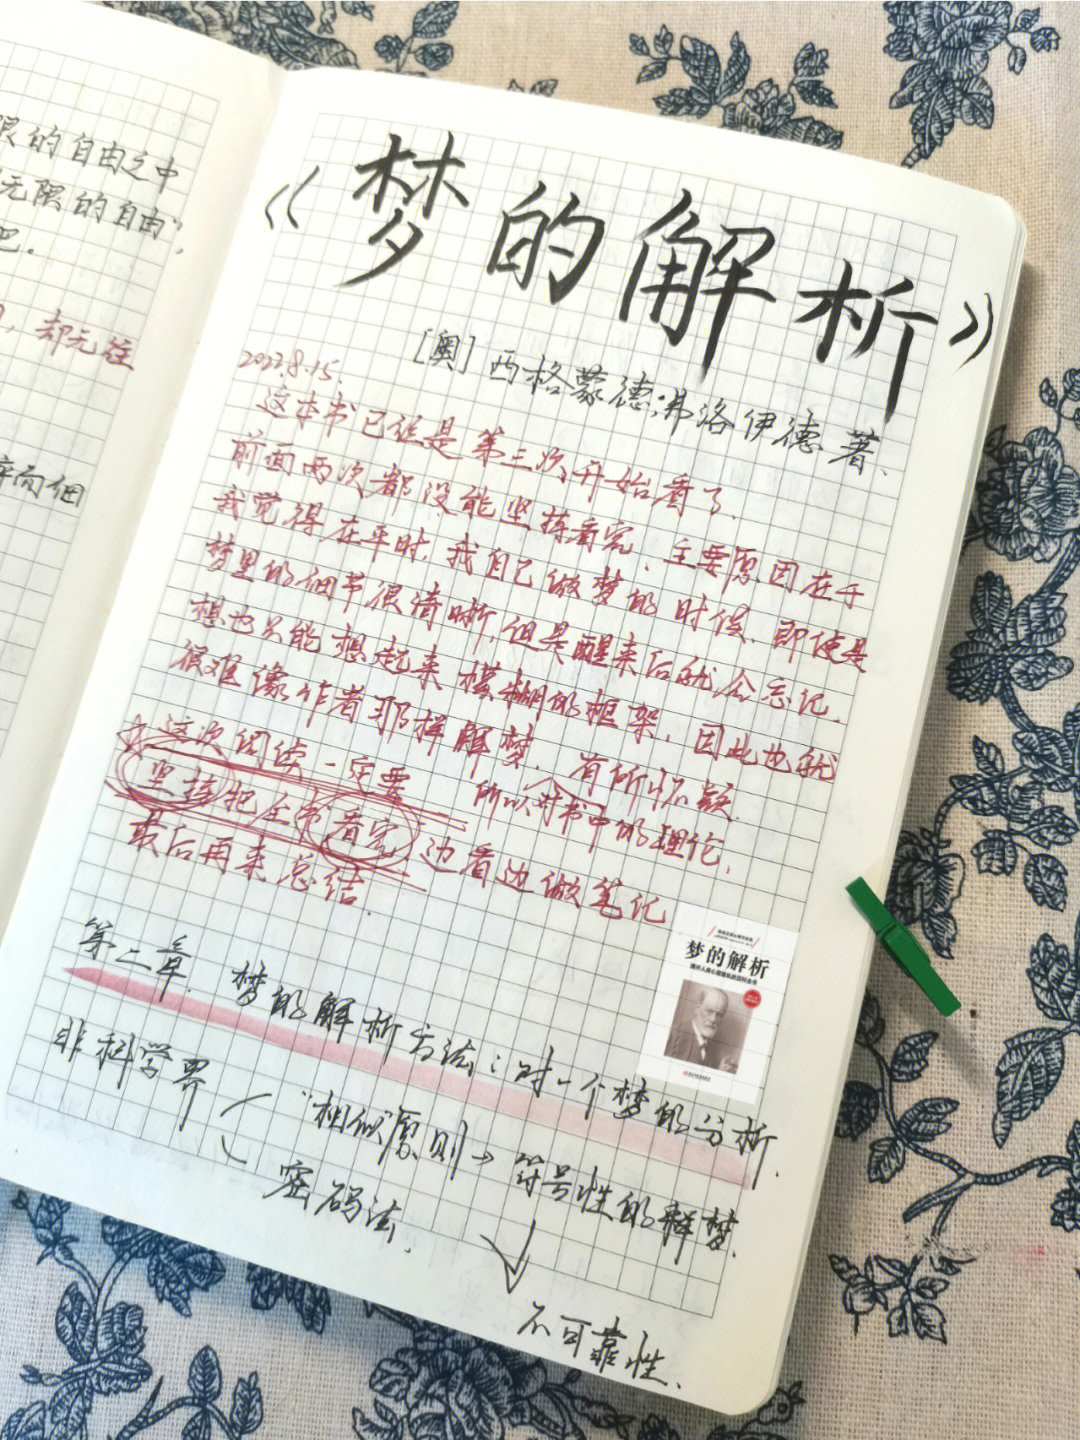 限的自由之中
无限的自由",
吧.
，却无往
而佃
《梦的解析》
[奥]西格蒙德·弗洛伊德 著、
2022.8.15.
这本书已经是第三次开始看了、
前面两次都没能坚持看完、主要原因在于
我觉得在平时，我自己做梦的时候、即使是
梦里的细节很清晰，但是醒来后就会忘记、
想也只能想起来模糊的框架，因此也就
很难像作者那样解梦、有所怀疑.
所以对书中的理论，
☆这次阅读一定要
坚持把全书看完 边看边做笔记
最后再来总结.
梦的解析
揭开人类心理奥秘的百科全书
第二章. 梦的解析方法：对一个梦的分析.
非科学界
"相似"原则→符号性的解梦.
密码法.
不可靠性.